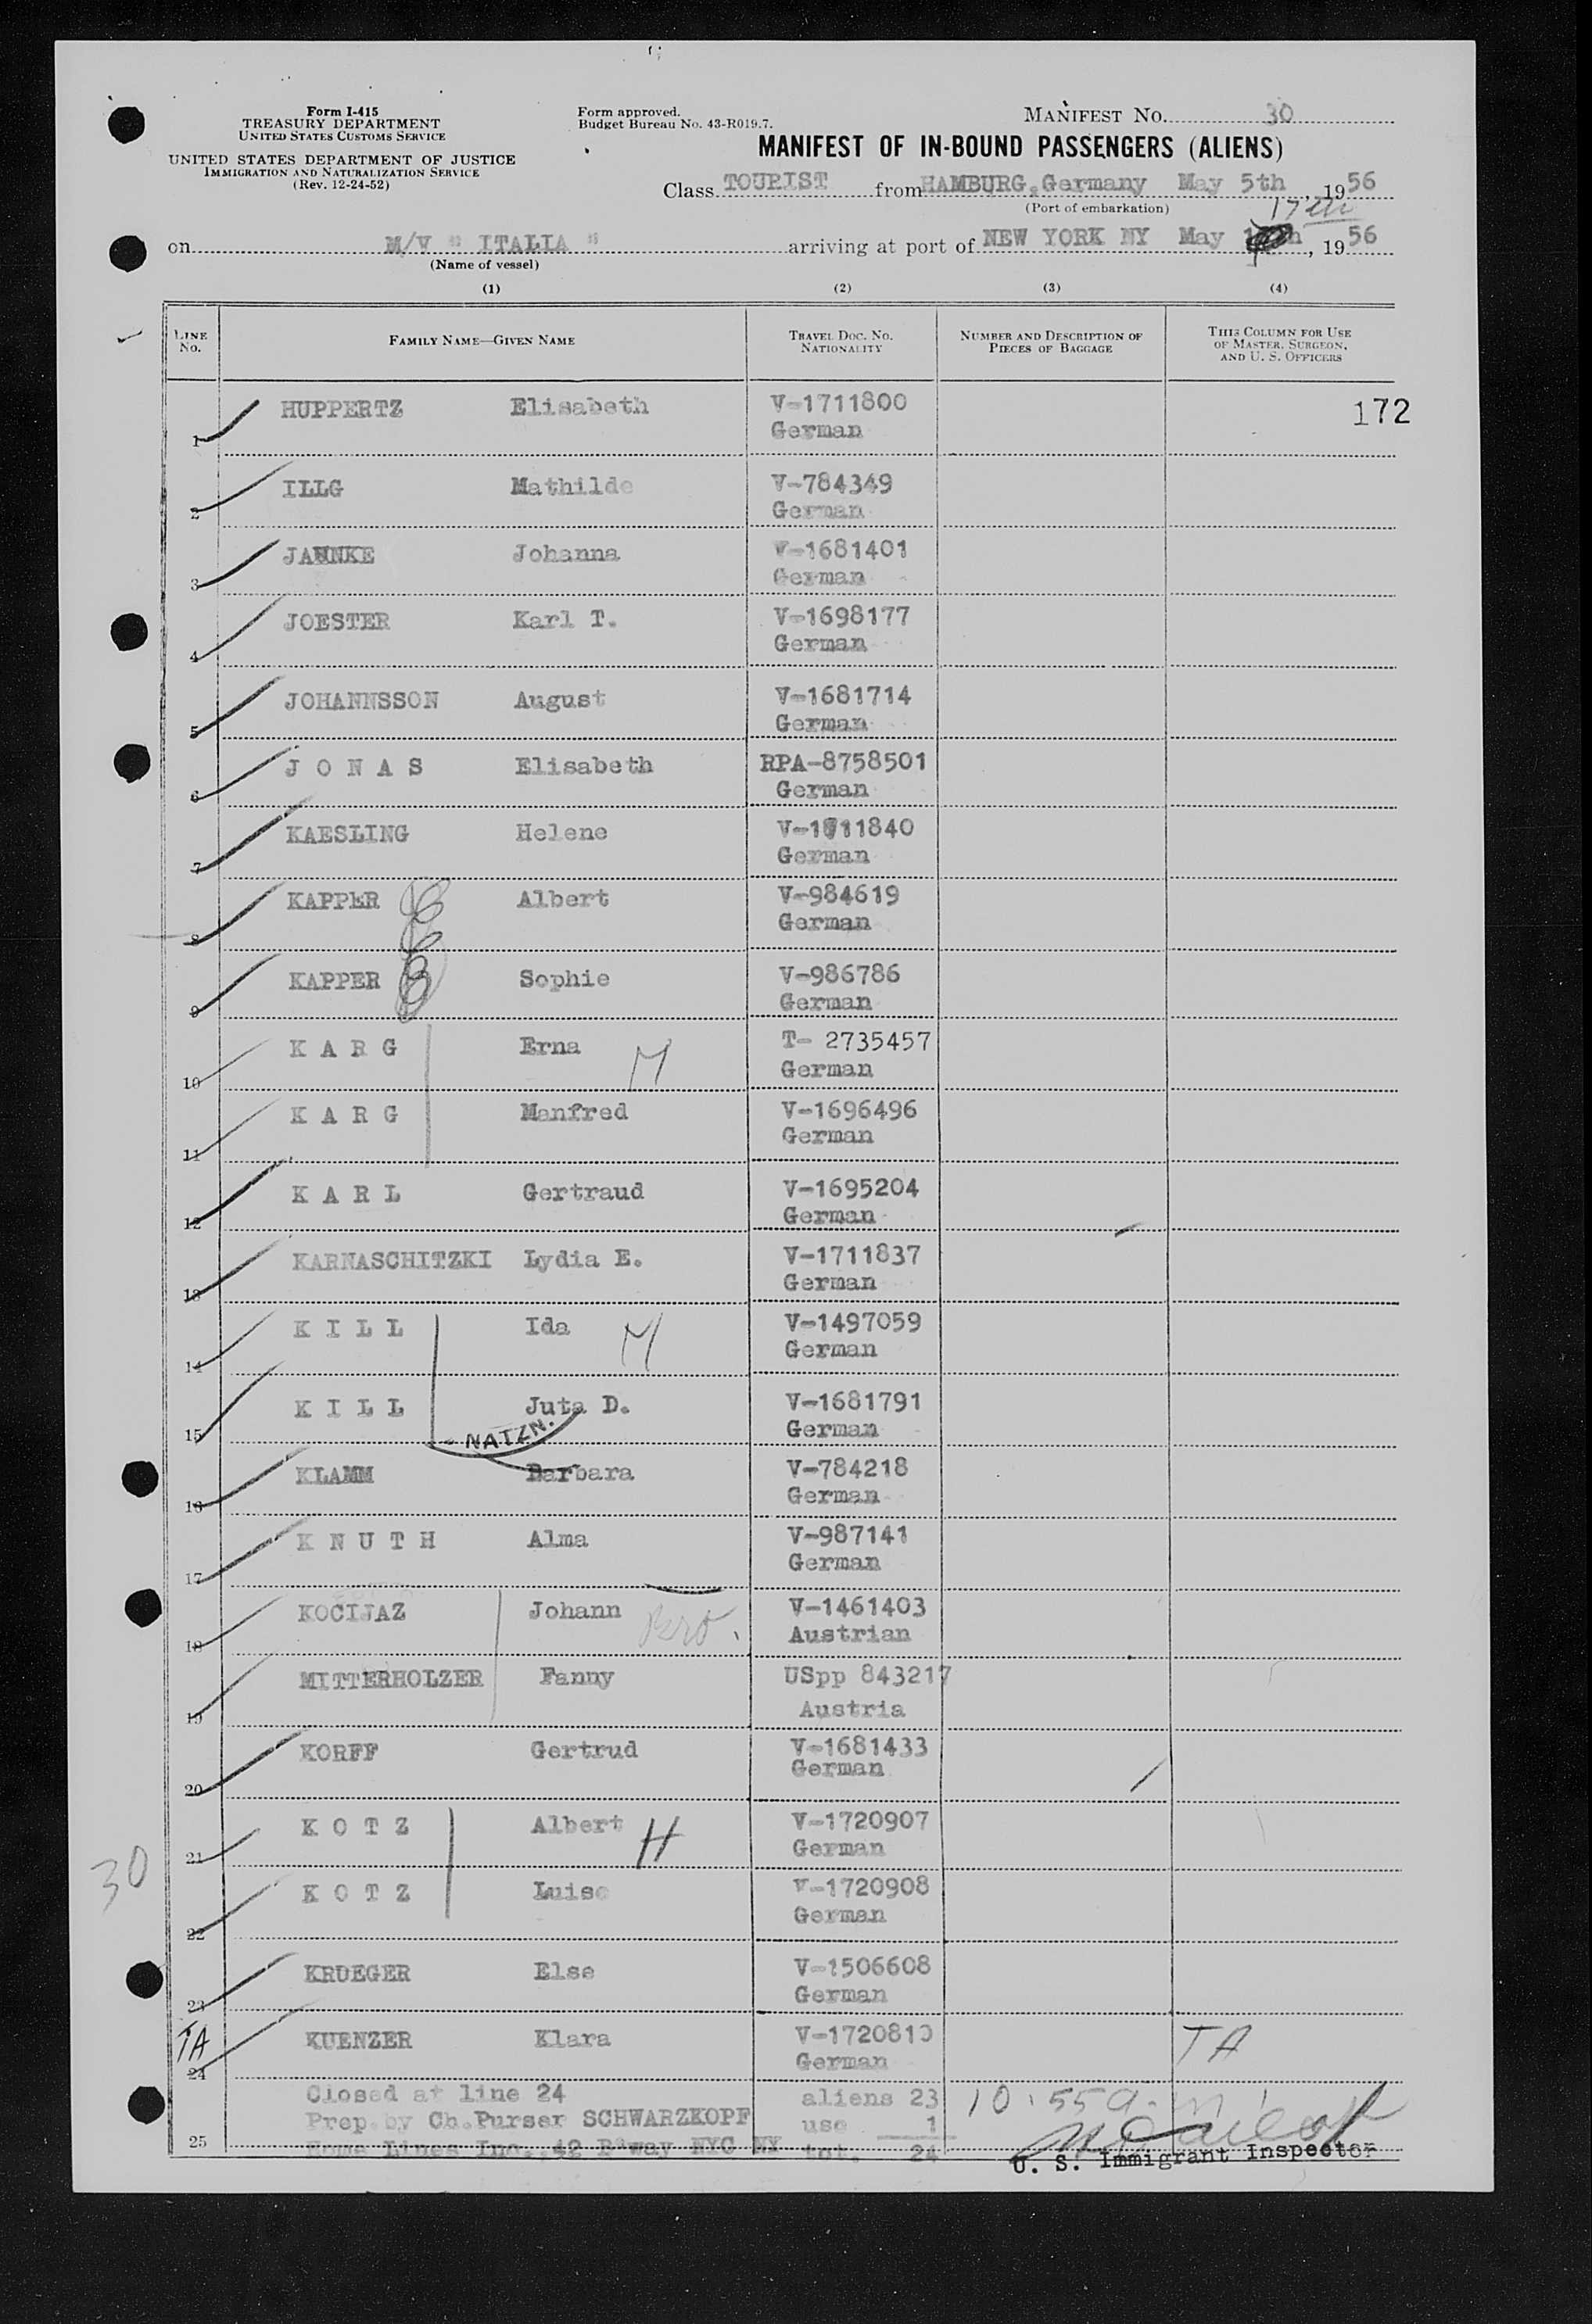 Form I-415
TREASURY DEPARTMENT
UNITED STATES CUSTOMS SERVICE
UNITED STATES DEPARTMENT OF JUSTICE
IMMIGRATION AND NATURALIZATION SERVICE
(Rev. 12-24-52)
Form approved.
Budget Bureau No. 43-R019.7.
MANIFEST No. 30
MANIFEST OF IN-BOUND PASSENGERS (ALIENS)
Class TOURIST from HAMBURG, Germany May 5th, 1956
(Port of embarkation)
17th
on M/V " ITALIA " arriving at port of NEW YORK NY May , 1956
(Name of vessel)
(1) (2) (3) (4)
LINE No. FAMILY NAME—GIVEN NAME TRAVEL DOC. No. NATIONALITY NUMBER AND DESCRIPTION OF PIECES OF BAGGAGE THIS COLUMN FOR USE OF MASTER, SURGEON, AND U. S. OFFICERS
172
1 HUPPERTZ Elisabeth V-1711800
German
2 ILLG Mathilde V-784349
German
3 JAHNKE Johanna V-1681401
German
4 JOESTER Karl T. V-1698177
German
5 JOHANNSSON August V-1681714
German
6 J O N A S Elisabeth RPA-8758501
German
7 KAESLING Helene V-1711840
German
8 KAPPER Albert V-984619
German
9 KAPPER Sophie V-986786
German
10 K A R G Erna M T- 2735457
German
11 K A R G Manfred V-1696496
German
12 K A R L Gertraud V-1695204
German
13 KARNASCHITZKI Lydia E. V-1711837
German
14 K I L L Ida M V-1497059
German
15 K I L L Juta D. V-1681791
German
NATZN.
16 KLAMM Barbara V-784218
German
17 K N U T H Alma V-987141
German
18 KOCIJAZ Johann Bro. V-1461403
Austrian
19 MITTERHOLZER Fanny USpp 843217
Austria
20 KORFF Gertrud V-1681433
German
21 K O T Z Albert H V-1720907
German
30
22 K O T Z Luise V-1720908
German
23 KRUEGER Else V-1506608
German
TA 24 KUENZER Klara V-1720810 TA
German
Closed at line 24 aliens 23 10:55 a.m.
Prep.by Ch.Purser SCHWARZKOPF usc 1
25 Home Lines Inc.,42 B'way NYC NY tot. 24
U. S. Immigrant Inspector